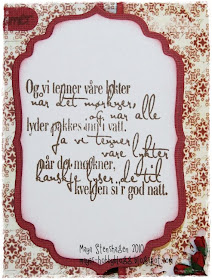 Og vi tenner våre lykter
når det mørkner,
og når alle
lyder pakkes inn i vatt.
Ja vi tenner
våre lykter
når det mørkner,
kanskje lyser de til
kvelden si'r god natt.
Maya Stenthagen 2010